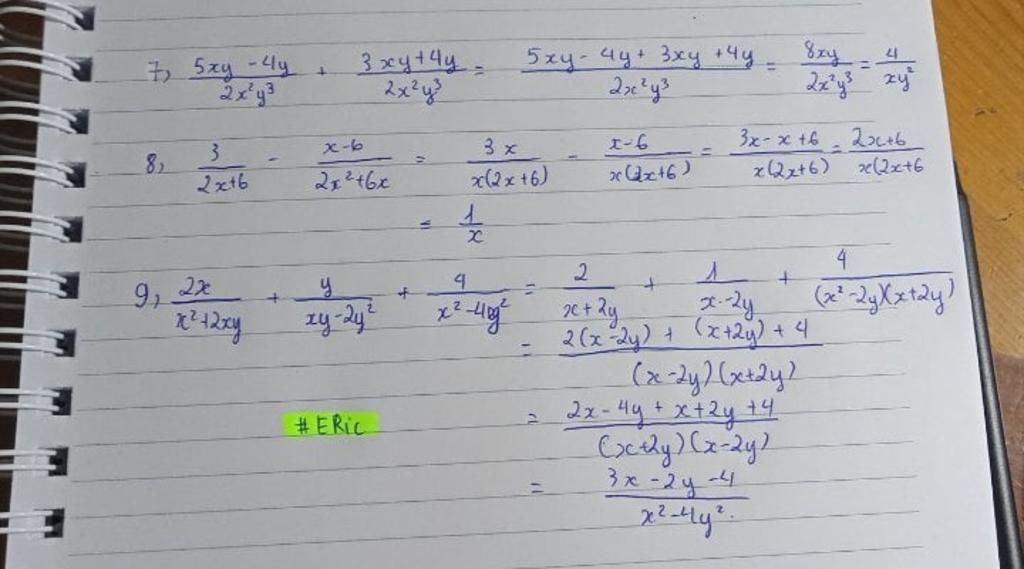 7, (5xy - 4y)/(2x²y³) + (3xy + 4y)/(2x²y³) = (5xy - 4y + 3xy + 4y)/(2x²y³) = 8xy/(2x²y³) = 4/(xy²)
8, 3/(2x+6) - (x-6)/(2x²+6x) = 3x/(x(2x+6)) - (x-6)/(x(2x+6)) = (3x - x + 6)/(x(2x+6)) = (2x+6)/(x(2x+6
= 1/x
9, 2x/(x²+2xy) + y/(xy-2y²) + 4/(x²-4y²) = 2/(x+2y) + 1/(x-2y) + 4/((x²-2y)(x+2y))
= (2(x-2y) + (x+2y) + 4)/((x-2y)(x+2y))
#ERic = (2x - 4y + x + 2y + 4)/((x+2y)(x-2y))
= (3x - 2y - 4)/(x² - 4y²).